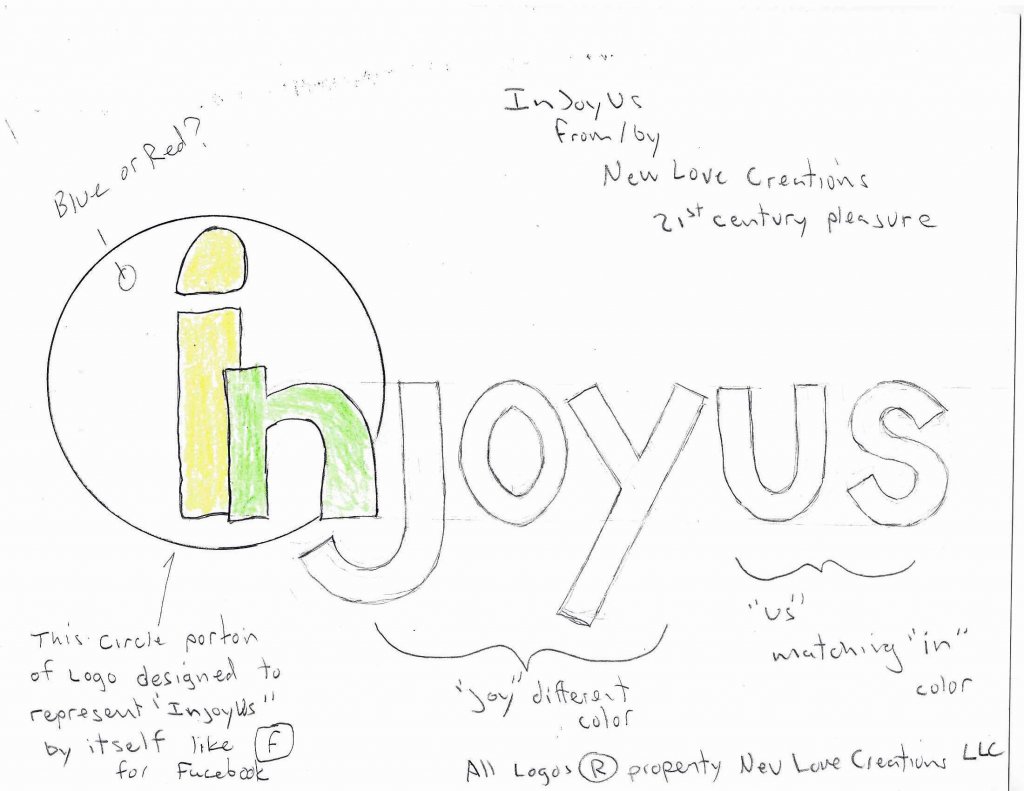 InJoyUs
from/by
New Love Creations
21st century pleasure
Blue or Red?
injoyus
"us"
matching "in"
color
"joy" different
color
This Circle portion
of Logo designed to
represent "InjoyUs"
by itself like F
for Facebook
All Logos ® property New Love Creations LLC